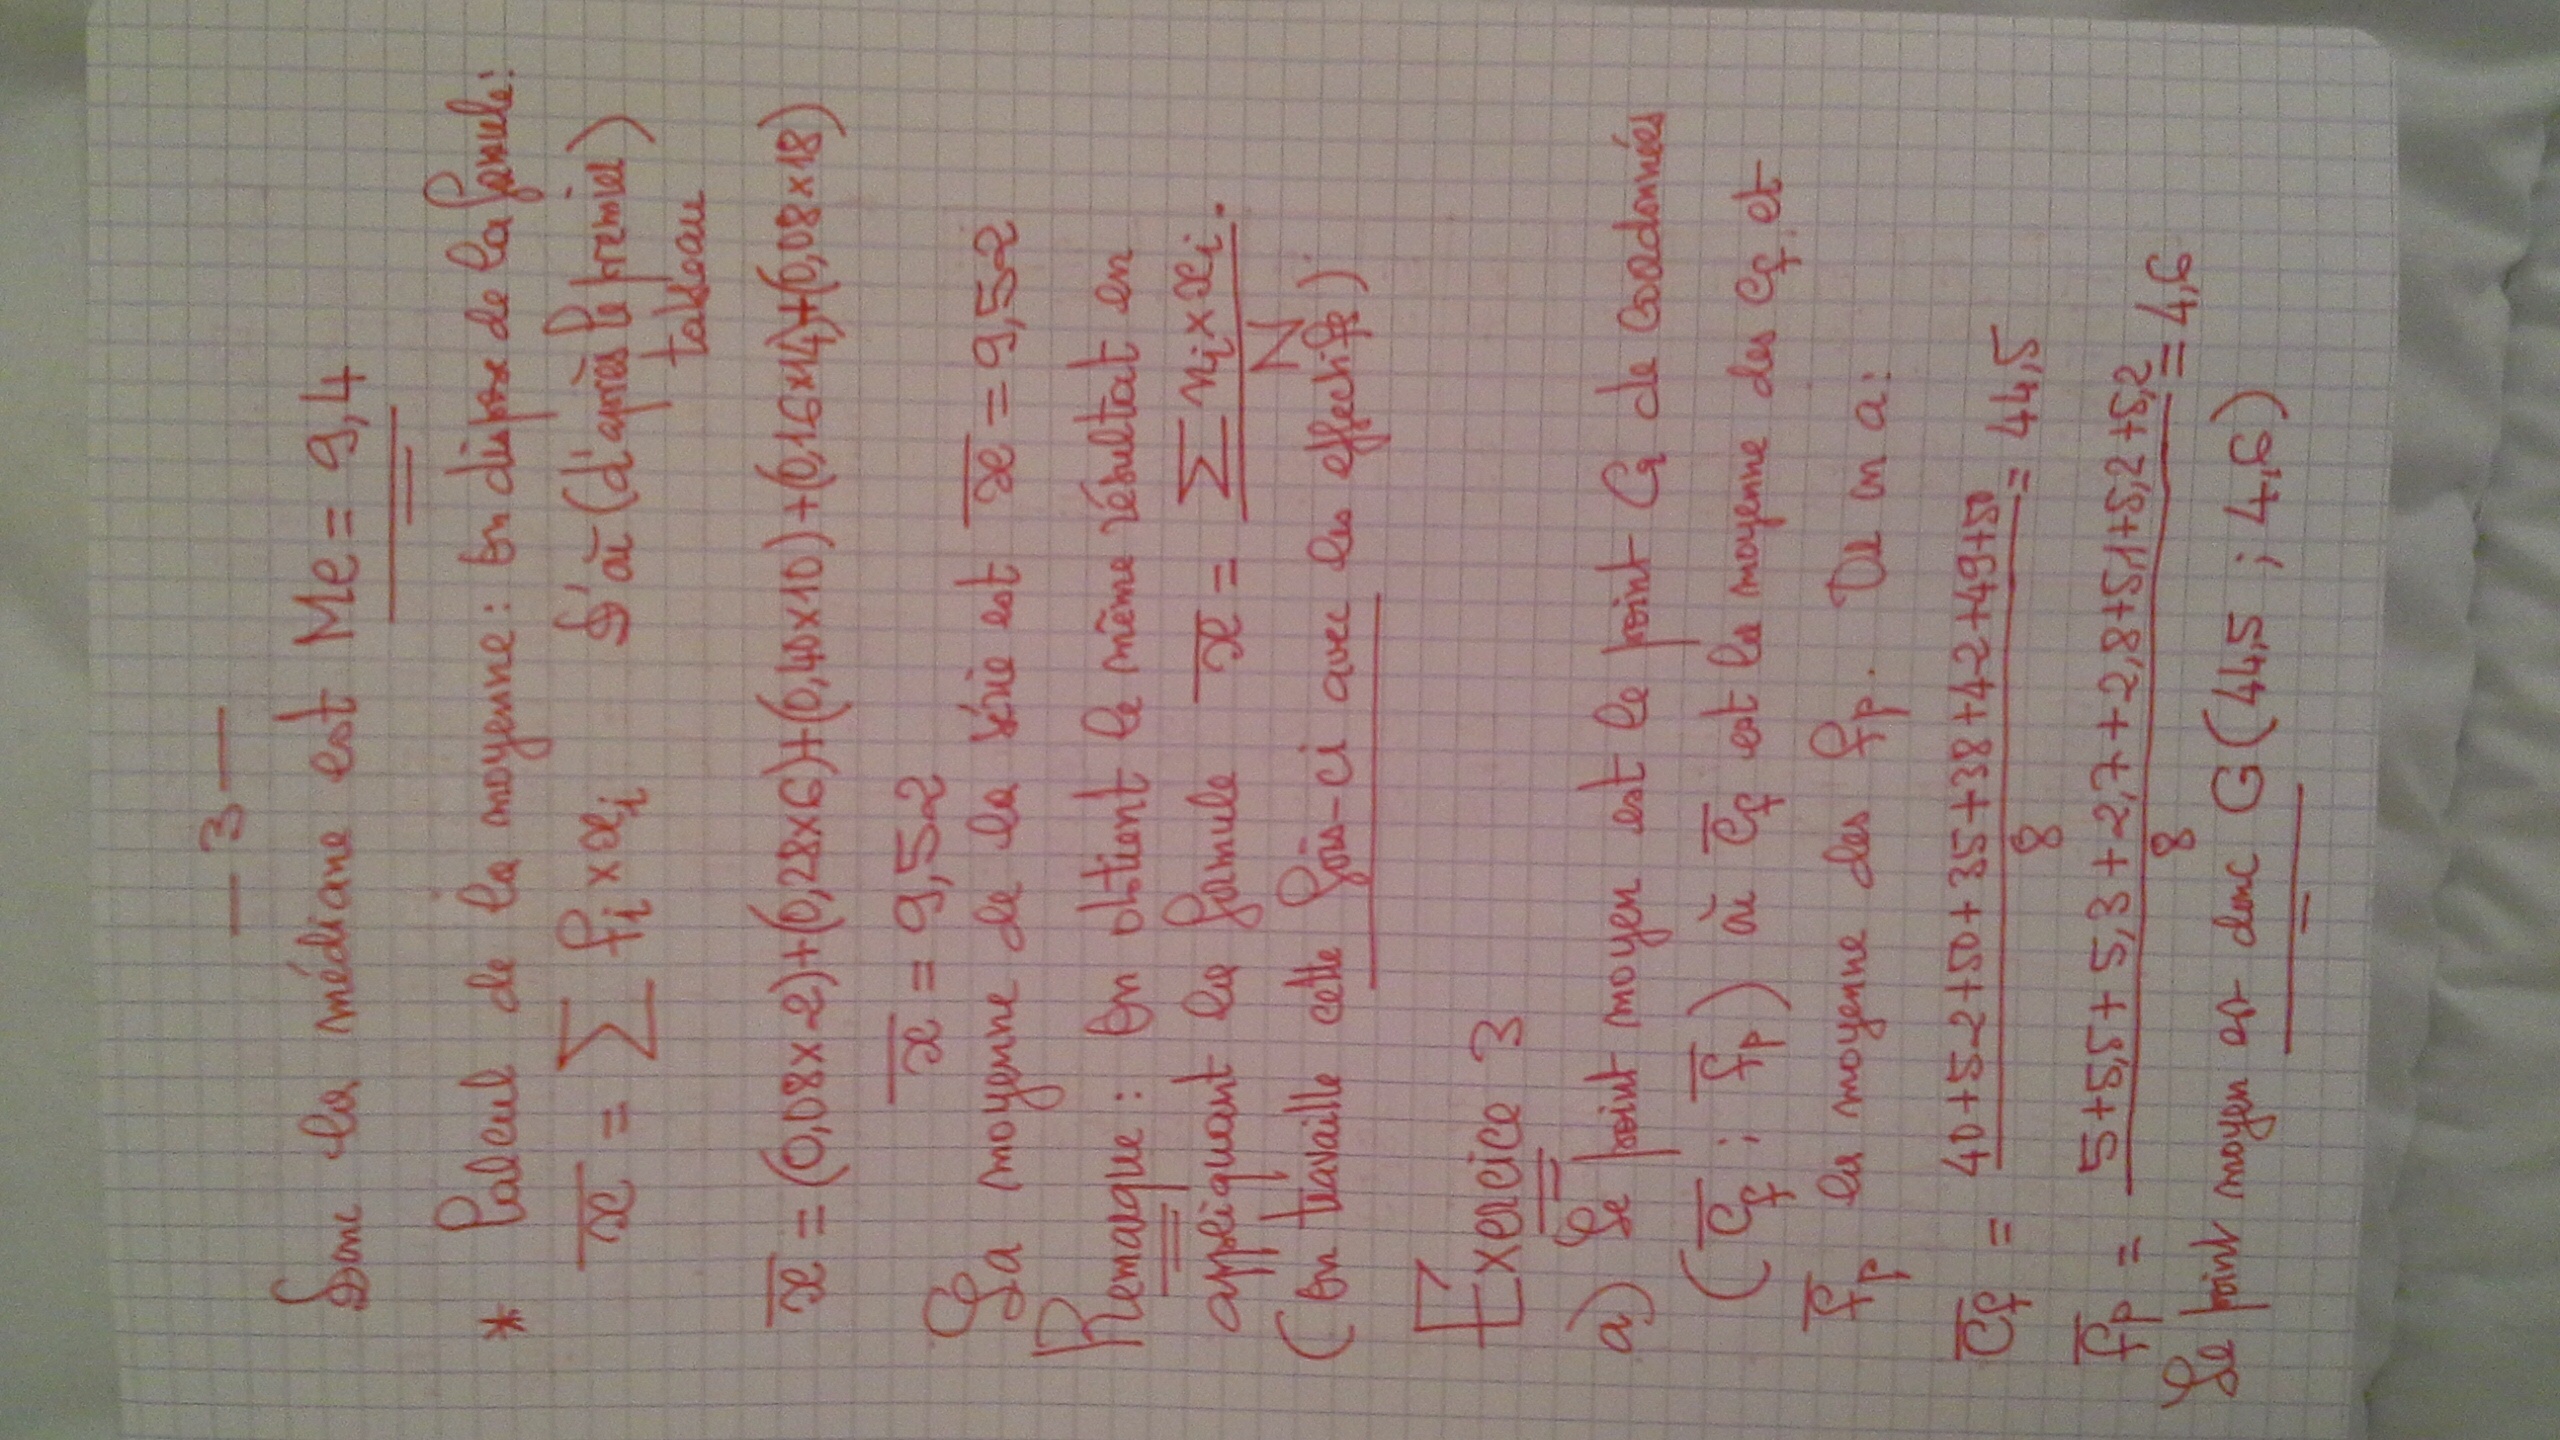 — 3 —
Donc la médiane est Me = 9,4
* Calcul de la moyenne : On dispose de la formule :
x̄ = ∑ fi × xi D'où (d'après le premier tableau)
x̄ = (0,08×2)+(0,28×6)+(0,40×10)+(0,16×14)+(0,08×18)
x̄ = 9,52
La moyenne de la série est x̄ = 9,52
Remarque : On obtient le même résultat en
appliquant la formule x̄ = ∑ ni × xi / N .
(On travaille cette fois-ci avec les effectifs)
Exercice 3
a) Le point moyen est le point G de coordonnées
(C̄f ; f̄p) où C̄f est la moyenne des Cf et
f̄p la moyenne des fp. Or on a :
C̄f = 40+52+50+35+38+42+49+50 / 8 = 44,5
f̄p = 5+5,5+5,3+2,7+2,8+5,1+5,2+5,2 / 8 = 4,6
Le point moyen est donc G(44,5 ; 4,6)